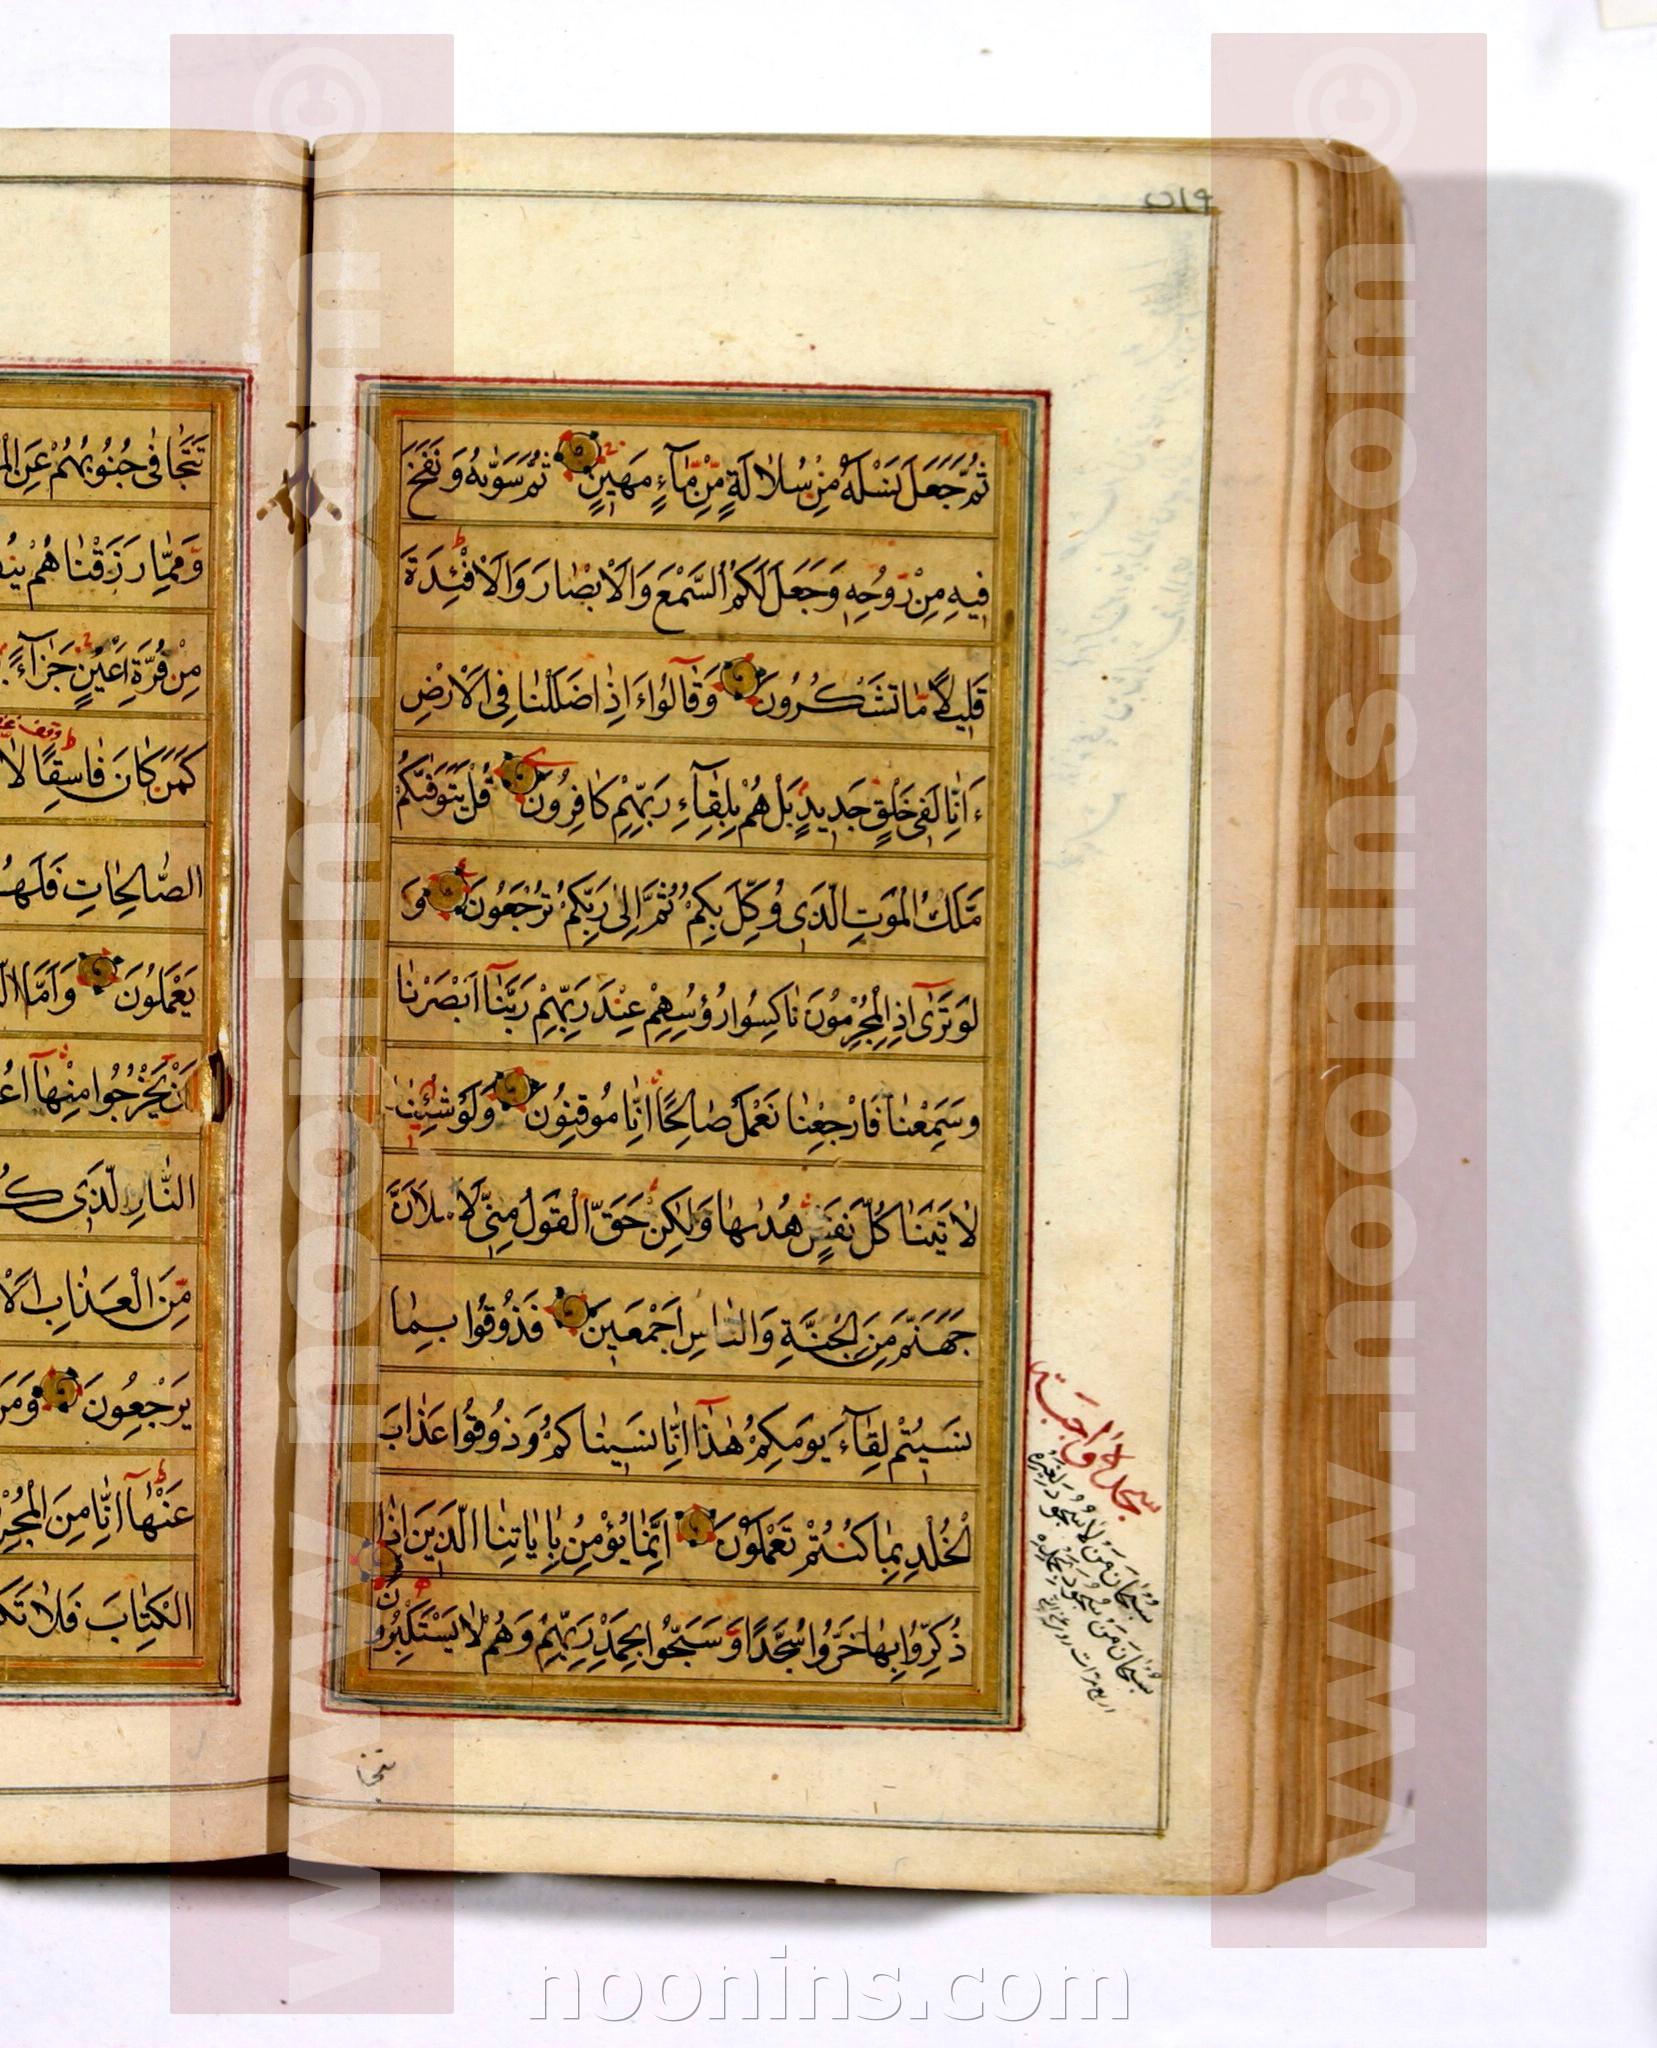 ثُمَّ جَعَلَ نَسْلَهُ مِنْ سُلَالَةٍ مِّنْ مَّآءٍ مَهِينٍ ثُمَّ سَوّٰىهُ وَنَفَخَ
فِيهِ مِنْ رُوحِهِ وَجَعَلَ لَكُمُ السَّمْعَ وَالْاَبْصَارَ وَالْاَفْئِدَةَ
قَلِيلًا مَّا تَشْكُرُونَ وَقَالُوٓا ءَاِذَا ضَلَلْنَا فِي الْاَرْضِ
ءَاِنَّا لَفِي خَلْقٍ جَدِيدٍ بَلْ هُمْ بِلِقَآءِ رَبِّهِمْ كَافِرُونَ قُلْ يَتَوَفّٰىكُمْ
مَلَكُ الْمَوْتِ الَّذِي وُكِّلَ بِكُمْ ثُمَّ اِلٰى رَبِّكُمْ تُرْجَعُونَ وَ
لَوْ تَرٰٓى اِذِ الْمُجْرِمُونَ نَاكِسُوا رُؤُسِهِمْ عِنْدَ رَبِّهِمْ رَبَّنَآ اَبْصَرْنَا
وَسَمِعْنَا فَارْجِعْنَا نَعْمَلْ صَالِحًا اِنَّا مُوقِنُونَ وَلَوْ شِئْنَا
لَاٰتَيْنَا كُلَّ نَفْسٍ هُدٰىهَا وَلٰكِنْ حَقَّ الْقَوْلُ مِنِّي لَاَمْلَاَنَّ
جَهَنَّمَ مِنَ الْجِنَّةِ وَالنَّاسِ اَجْمَعِينَ فَذُوقُوا بِمَا
نَسِيتُمْ لِقَآءَ يَوْمِكُمْ هٰذَآ اِنَّا نَسِينَاكُمْ وَذُوقُوا عَذَابَ
الْخُلْدِ بِمَا كُنْتُمْ تَعْمَلُونَ اِنَّمَا يُؤْمِنُ بِاٰيَاتِنَا الَّذِينَ اِذَا
ذُكِّرُوا بِهَا خَرُّوا سُجَّدًا وَّسَبَّحُوا بِحَمْدِ رَبِّهِمْ وَهُمْ لَا يَسْتَكْبِرُونَ
سجدهٔ واجبة
سُبْحَانَ مَنْ لَا سُجُودَ لِغَيْرِهِ
سُبْحَانَ مَنْ
اربع مرات
تتجا
تَتَجَافٰى جُنُوبُهُمْ عَنِ
وَمِمَّا رَزَقْنَاهُمْ
مِنْ قُرَّةِ اَعْيُنٍ جَزَآءً
كَمَنْ كَانَ فَاسِقًا لَا
الصَّالِحَاتِ فَلَهُ
يَعْمَلُونَ وَاَمَّا
اَنْ يَخْرُجُوا مِنْهَآ
النَّارِ الَّذِي
مِنَ الْعَذَابِ
يَرْجِعُونَ وَمَنْ
عَنْهَآ اِنَّا مِنَ
الْكِتَابَ فَلَا
www.noonins.com ©
www.noonins.com ©
noonins.com